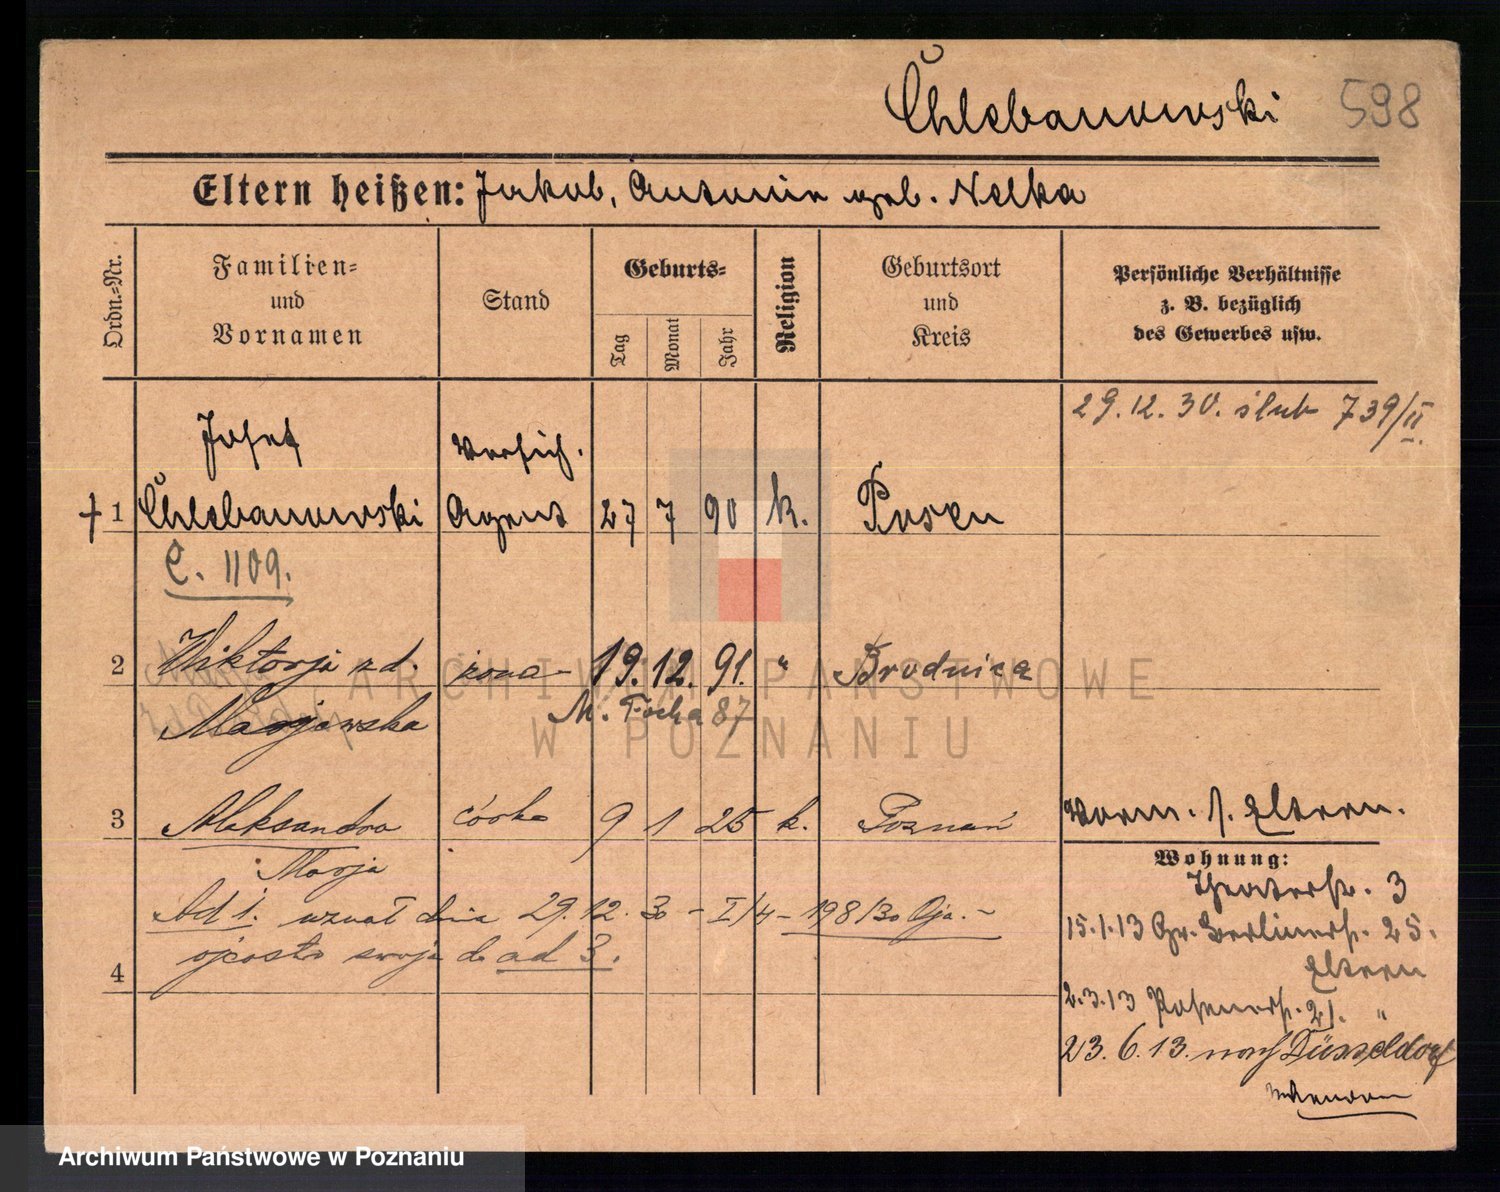 Chlebanowski 598
Eltern heißen: Jakob, Antonie geb. Nelka
Ordn.-Nr.
Familien- und Vornamen
Stand
Geburts-
Tag
Monat
Jahr
Religion
Geburtsort und Kreis
Persönliche Verhältnisse z. B. bezüglich des Gewerbes usw.
29.12.30. ślub 739/II.
Josef Versich.
† 1 Chlebanowski Agent 27 7 90 k. Posen
C. 1109.
2 Wiktorja zd. żona 19. 12. 91. " Brodnica
Majewska M. Focha 87
3 Aleksandra córka 9 1 25 k. Poznań
Marja
Vorm. s. Eltern.
Wohnung:
Theaterstr. 3
Ad 1. uznał dnia 29.12.30 – I/4 – 198/30 Oja. –
ojcostwo swoje do ad 3.
4
15.1.13 Gr. Berlinerstr. 25.
Eltern
2.3.13 Posenerstr. 21. "
23.6.13. nach Düsseldorf
ARCHIWUM PAŃSTWOWE
W POZNANIU
Archiwum Państwowe w Poznaniu